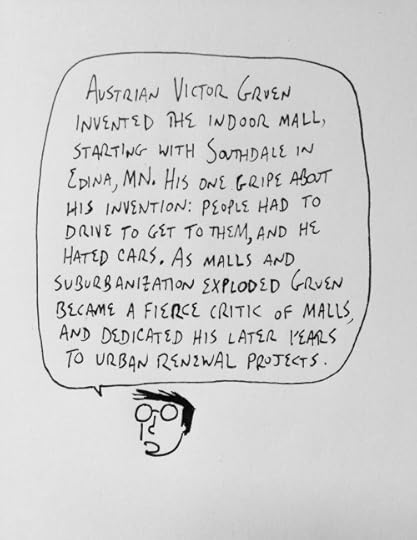 AUSTRIAN VICTOR GRUEN
INVENTED THE INDOOR MALL,
STARTING WITH SOUTHDALE IN
EDINA, MN. HIS ONE GRIPE ABOUT
HIS INVENTION: PEOPLE HAD TO
DRIVE TO GET TO THEM, AND HE
HATED CARS. AS MALLS AND
SUBURBANIZATION EXPLODED GRUEN
BECAME A FIERCE CRITIC OF MALLS,
AND DEDICATED HIS LATER YEARS
TO URBAN RENEWAL PROJECTS.